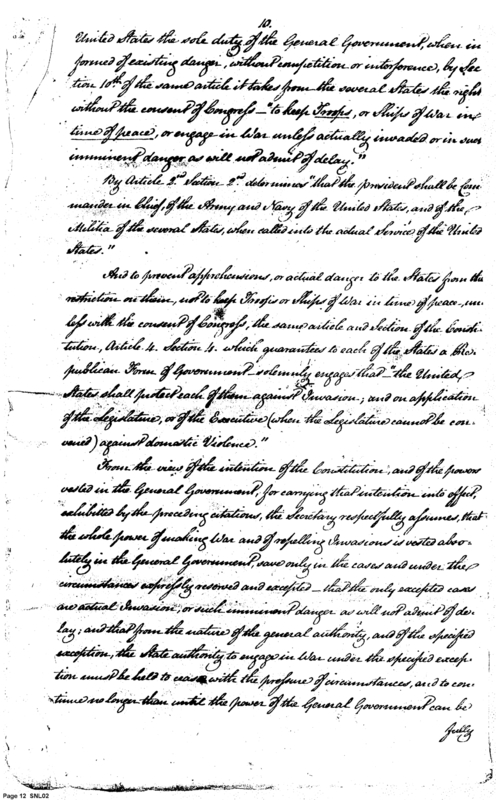 10.
United States the sole duty of the General Government, when in
formed of existing danger, without competition or interference, by Sec
tion 10th of the same article it takes from the several States the right
without the consent of Congress – "to keep Troops, or Ships of War in
time of peace, or engage in War unless actually invaded or in such
imminent danger as will not admit of delay."
By Article 2d Section 2d determines "that the president shall be Com
mander in Chief, of the Army and Navy of the United States, and of the
Militia of the several States, when called into the actual Service of the United
States."
And to prevent apprehensions, or actual danger to the States from the
restriction on them, not to keep Troops or Ships of War in time of peace, un
less with the consent of Congress, the same article and Section of the Consti-
tution, Article 4. Section 4. which guarantees to each of the States a Re-
publican Form of Government solemnly engages that "the United
States shall protect each of them against Invasion; and on application
of the Legislature, or of the Executive (when the Legislature cannot be con
vened) against domestic Violence."
From the view of the intention of the Constitution, and of the powers
vested in the General Government, for carrying that intention into effect,
exhibited by the preceding citations, the Secretary respectfully assumes, that
the whole power of making War and of repelling Invasions is vested abso-
lutely in the General Government, save only in the cases and under the
circumstances expressly reserved and excepted – that the only excepted cases
are actual Invasion, or such imminent danger as will not admit of de-
lay; and that from the nature of the general authority, and of the specified
exception, the State authority to engage in War under the specified excep-
tion must be held to cease with the pressure of circumstances, and to con-
tinue no longer than until the power of the General Government can be
fully
Page 12 SNL02